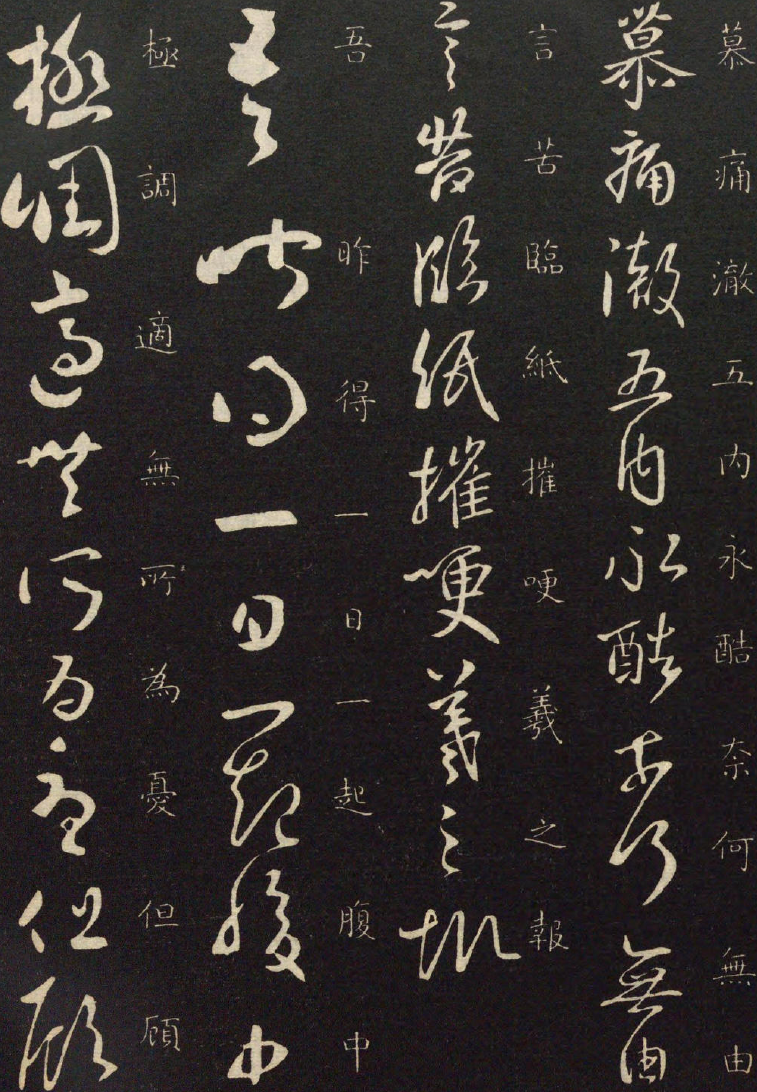 慕痛澈五内永酷奈何無由
慕痛澈五内永酷奈何無由
言苦臨紙摧哽羲之報
言苦臨紙摧哽羲之報
吾昨得一日一起腹中
吾昨得一日一起腹中
極調適無所為憂但顧
極調適無所為憂但顧